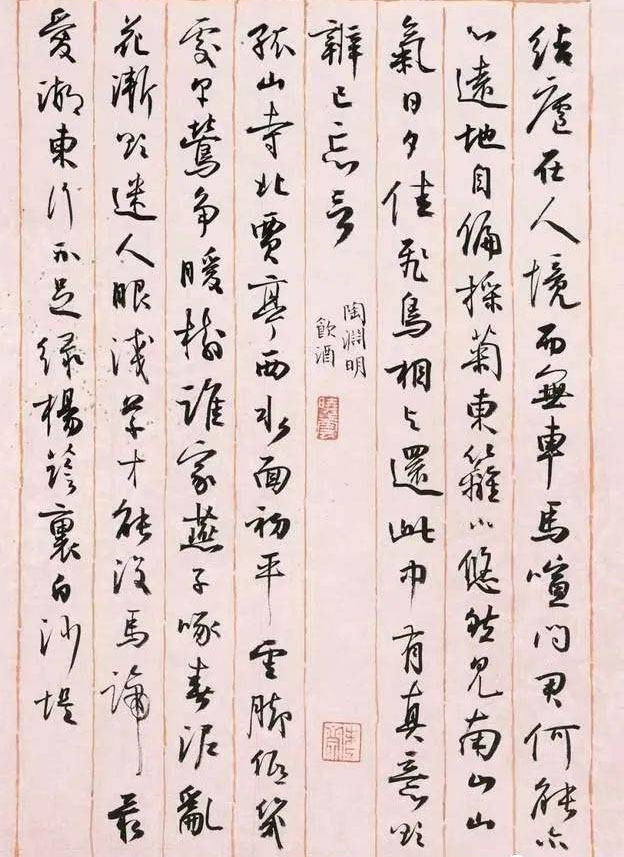 結廬在人境而無車馬喧問君何能尔
心遠地自偏採菊東籬下悠然見南山山
氣日夕佳飛鳥相与還此中有真意欲
辨已忘言
陶淵明
飲酒
孤山寺北賈亭西水面初平雲腳低幾
處早鶯爭暖樹誰家燕子啄春泥亂
花漸欲迷人眼淺草才能沒馬蹄最
愛湖東行不足綠楊陰裏白沙堤